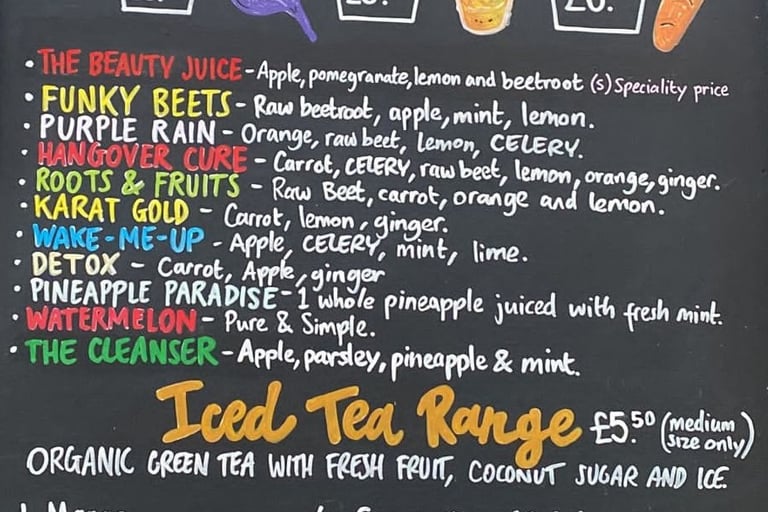 • THE BEAUTY JUICE - Apple, pomegranate, lemon and beetroot (s) Speciality price
• FUNKY BEETS - Raw beetroot, apple, mint, lemon.
• PURPLE RAIN - Orange, raw beet, Lemon, CELERY.
• HANGOVER CURE - Carrot, CELERY, raw beet, lemon, orange, ginger.
• ROOTS & FRUITS - Raw Beet, carrot, orange and lemon.
• KARAT GOLD - Carrot, lemon, ginger.
• WAKE-ME-UP - Apple, CELERY, mint, lime.
• DETOX - Carrot, Apple, ginger
• PINEAPPLE PARADISE - 1 whole pineapple juiced with fresh mint.
• WATERMELON - Pure & Simple.
• THE CLEANSER - Apple, parsley, pineapple & mint.
Iced Tea Range £5.50 (medium size only)
ORGANIC GREEN TEA WITH FRESH FRUIT, COCONUT SUGAR AND ICE.